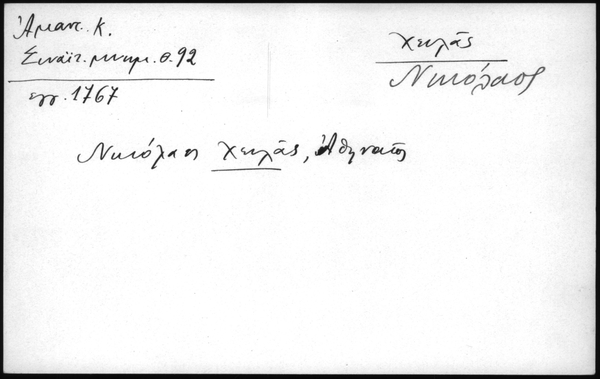 Ἄμαντ. Κ.
Σιναϊτ. μνημ. σ. 92
εγγ. 1767
Χειλᾶς
Νικόλαος
Νικόλαος Χειλᾶς, Ἀθηναῖος